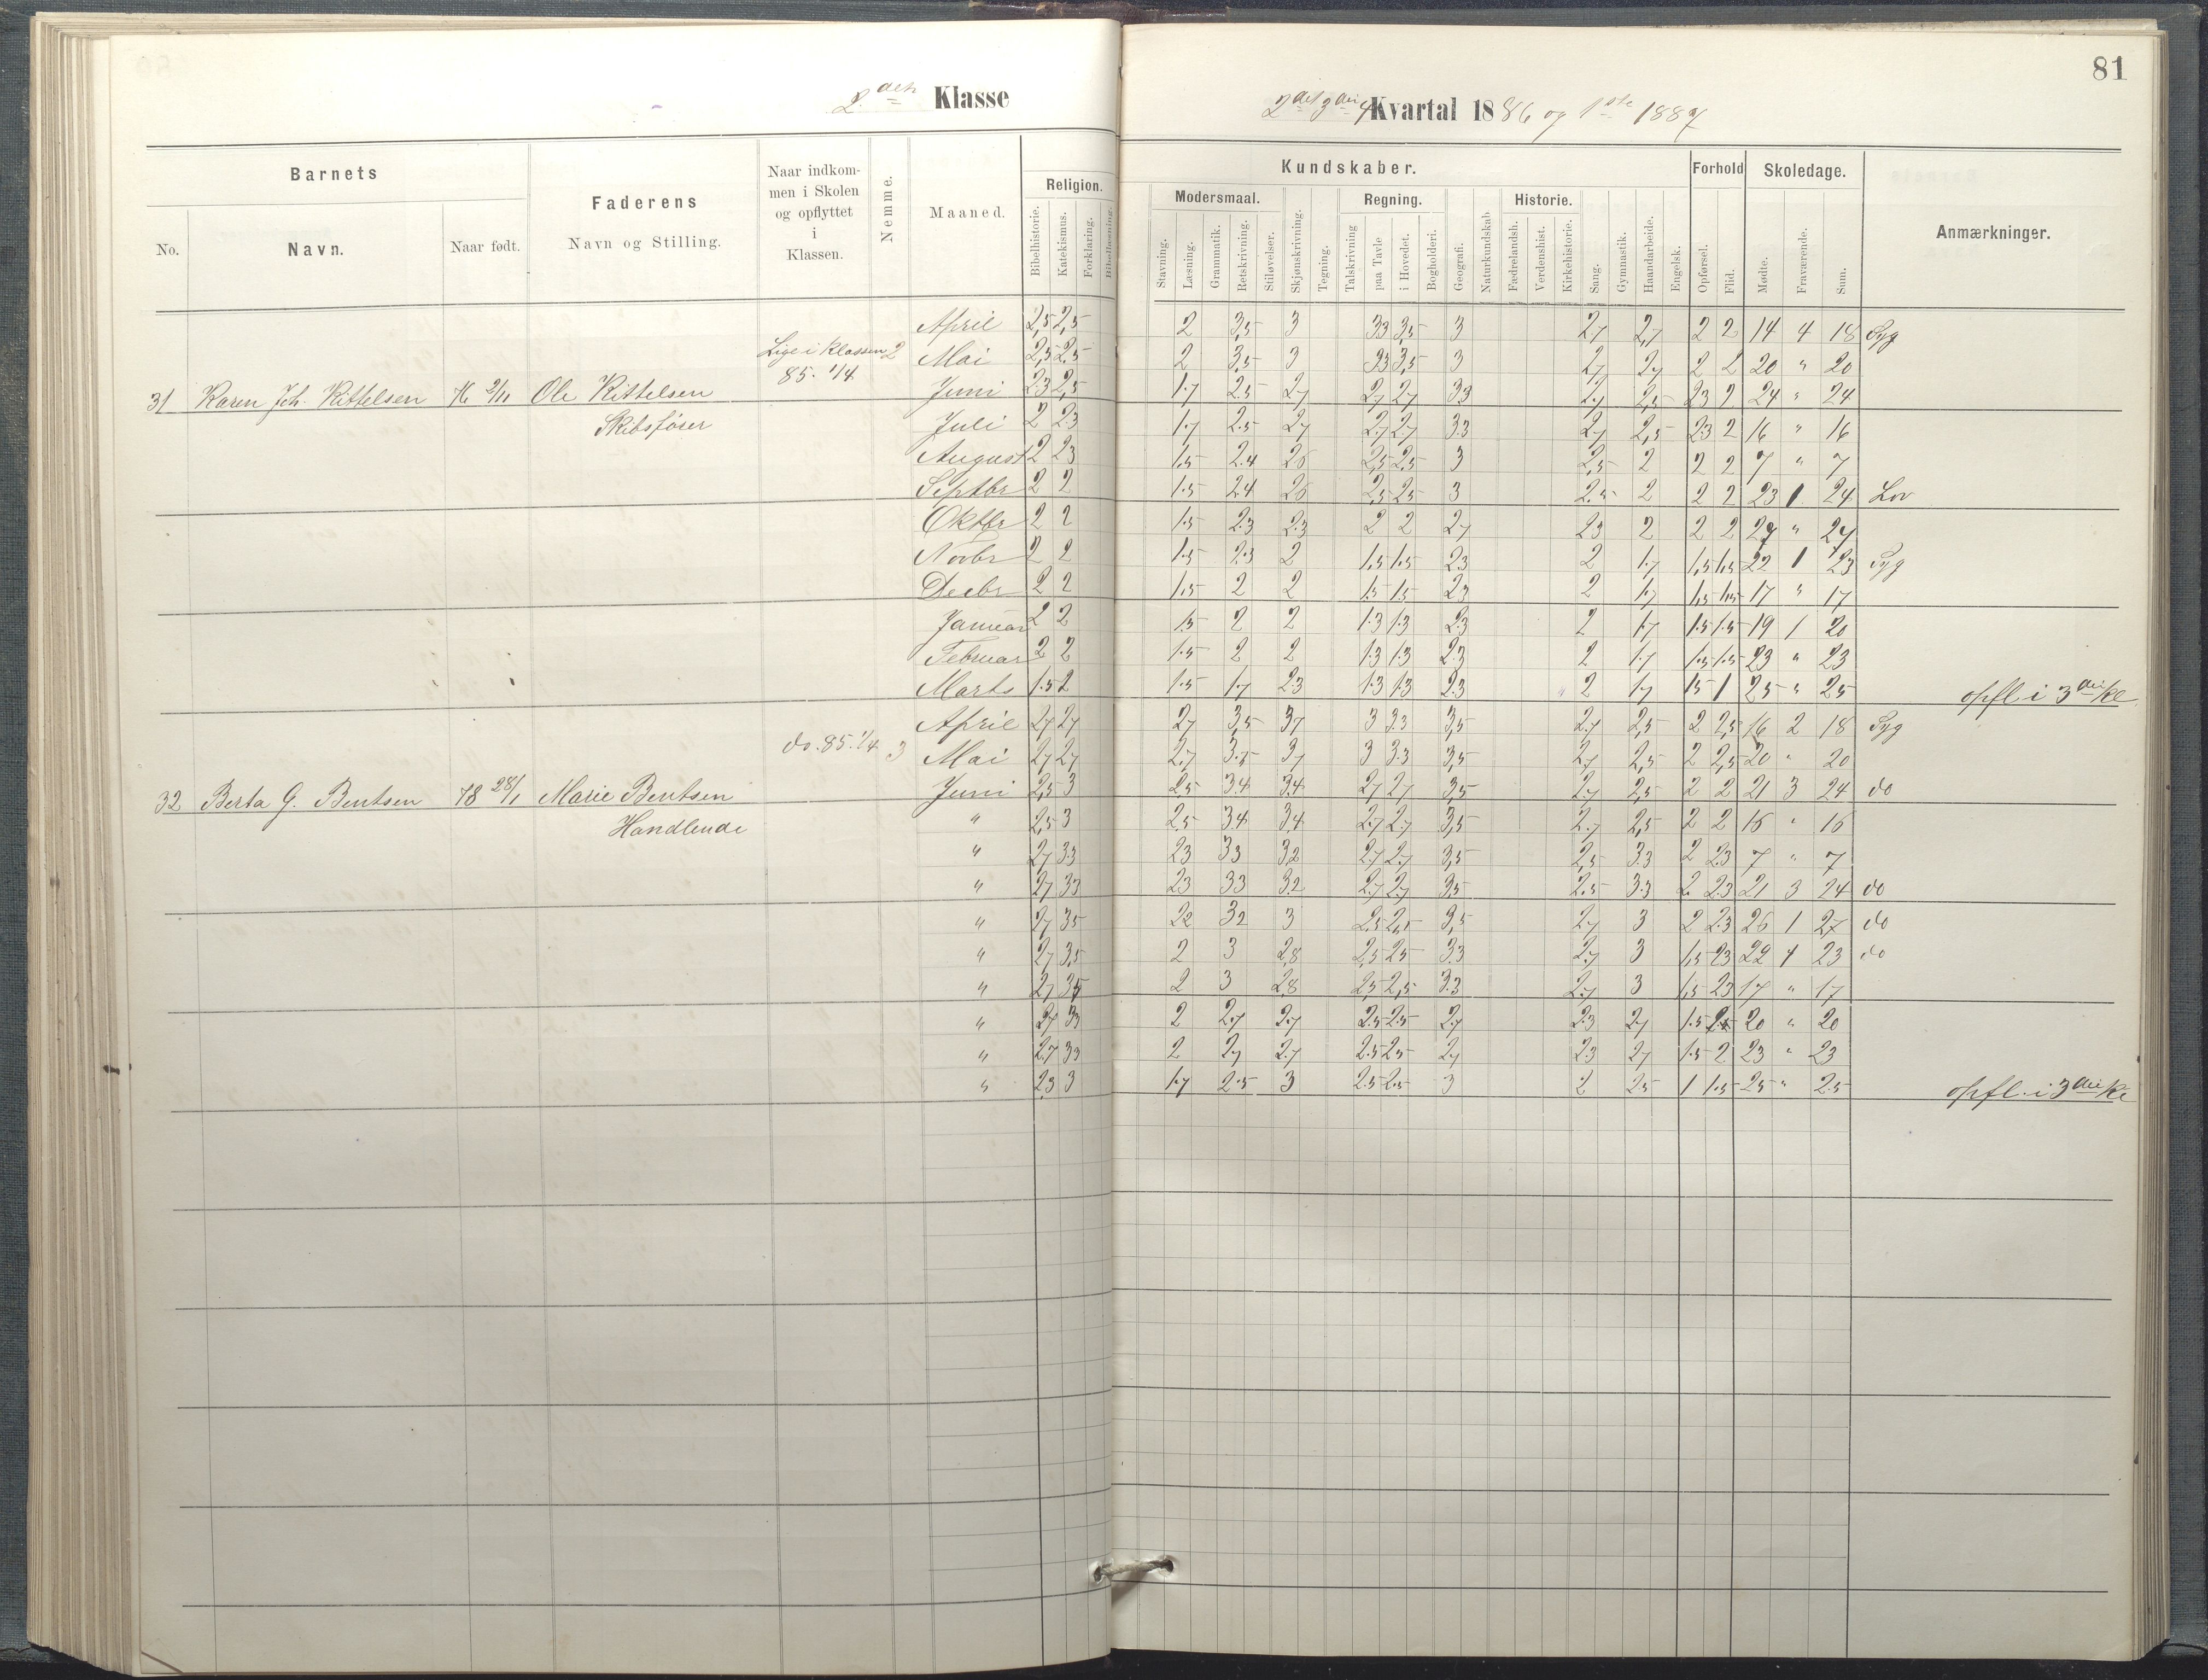 81
2den Klasse
2det 3die 4 Kvartal 1886 og 1ste 1887
Barnets
No.
Navn.
Naar født.
Faderens
Navn og Stilling.
Naar indkom-
men i Skolen
og opflyttet
i
Klassen.
Nemme.
Maaned.
Religion.
Bibelhistorie.
Katekismus.
Forklaring.
Bibellæsning.
Kundskaber.
Modersmaal.
Stavning.
Læsning.
Grammatik.
Retskrivning.
Stiløvelser.
Skjønskrivning.
Tegning.
Regning.
Talskrivning
paa Tavle
i Hovedet.
Bogholderi.
Geografi.
Naturkundskab
Historie.
Fædrelandsh.
Verdenshist.
Kirkehistorie.
Sang.
Gymnastik.
Haandarbeide.
Engelsk.
Forhold
Opførsel.
Flid.
Skoledage.
Mødte.
Fraværende.
Sum.
Anmærkninger.
April 2,5 2,5 2 3,5 3 33 3,5 3 2,7 2,7 2 2 14 4 18 Syg
Lige i Klassen 2 Mai 2,5 2,5 2 3,5 3 33 3,5 3 2,7 2,7 2 2 20 " 20
85. 1/4
31 Karen Joh. Kittelsen 76 2/11 Ole Kittelsen Juni 2.3 2,5 1.7 2.5 2,7 2,7 2,7 3.3 2,7 2,5 23 2 24 " 24
Skibsfører Juli 2 2.3 1.7 2.5 2,7 2.7 2,7 3.3 2,7 2,5 2.3 2 16 " 16
August 2 23 1,5 2.4 26 2,5 2,5 3 2,5 2 2 2 7 " 7
Septbr 2 2 1.5 24 26 2,5 25 3 2.5 2 2 2 23 1 24 Lov
Oktbr 2 2 1.5 2.3 2.3 2 2 27 23 2 2 2 27 " 27
Novbr 2 2 1.5 2.3 2 1,5 1.5 23 2 1.7 1,5 1,5 22 1 23 Syg
Decbr 2 2 1,5 2 2 1.5 1.5 23 2 1.7 1,5 1,5 17 " 17
Januar 2 2 1.5 2 2 1.3 1.3 2.3 2 1.7 1.5 1.5 19 1 20
Februar 2 2 1.5 2 2 1.3 1.3 2.3 2 1.7 1.5 1.5 23 " 23
Marts 1.5 2 1.5 1.7 2.3 1.3 1.3 2.3 2 1.7 15 1 25 " 25 opfl i 3die Kl
April 27 27 27 3,5 37 3 3.3 3,5 2.7 2,5 2 2,5 16 2 18 Syg
do. 85. 1/4 3 Mai 27 27 2,7 3.5 37 3 3.3 3,5 2,7 2,5 2 2,5 20 " 20
32 Berta G. Bentsen 78 28/1 Marie Bentsen Juni 2,5 3 2,5 34 3.4 27 27 3,5 2.7 2,5 2 2 21 3 24 do
Handlende " 2,5 3 2.5 34 3,4 2.7 2.7 3,5 2.7 2,5 2 2 16 " 16
" 27 33 23 33 32 2.7 2.7 3,5 2,5 3.3 2 2.3 7 " 7
" 27 33 23 33 32 2.7 2.7 35 2.5 3.3 2 2.3 21 3 24 do
" 27 35 22 32 3 2,5 2,5 3,5 2.7 3 2 2.3 26 1 27 do
" 27 3,5 2 3 2,8 2,5 25 33 2.7 3 1,5 23 22 1 23 do
" 27 35 2 3 28 25 2,5 3.3 2.7 3 1,5 23 17 " 17
" 27 33 2 2.7 2.7 2.5 2.5 2.7 2.3 27 1.5 2.5 20 " 20
" 2.7 33 2 27 2.7 2.5 25 27 2.3 27 1.5 2 23 " 23
" 23 3 1.7 2.5 3 2.5 2.5 3 2 25 1 1.5 25 " 25 opfl. i 3die Kl